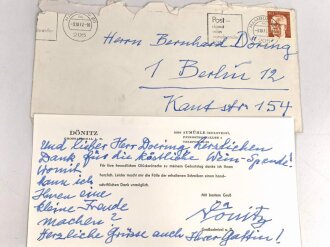 Post-
Herrn Bernhard Döring
1 Berlin 12
Kantstr 154
DÖNITZ
GROSSADMIRAL A. D.
2055 AUMÜHLE
Und lieber Herr Doering herzlichen
Dank für die köstliche Wein-Spende!
Für Ihre freundlichen Glückwünsche zu meinem Geburtstag danke ich Ihnen
herzlich. Leider macht mir die Fülle der erhaltenen Schreiben einen hand-
schriftlichen Dank unmöglich.
Womit
kann ich
Ihnen eine
kleine Freude
machen?
Mit bestem Gruß
Dönitz
Herzliche Grüsse auch Ihrer Gattin!